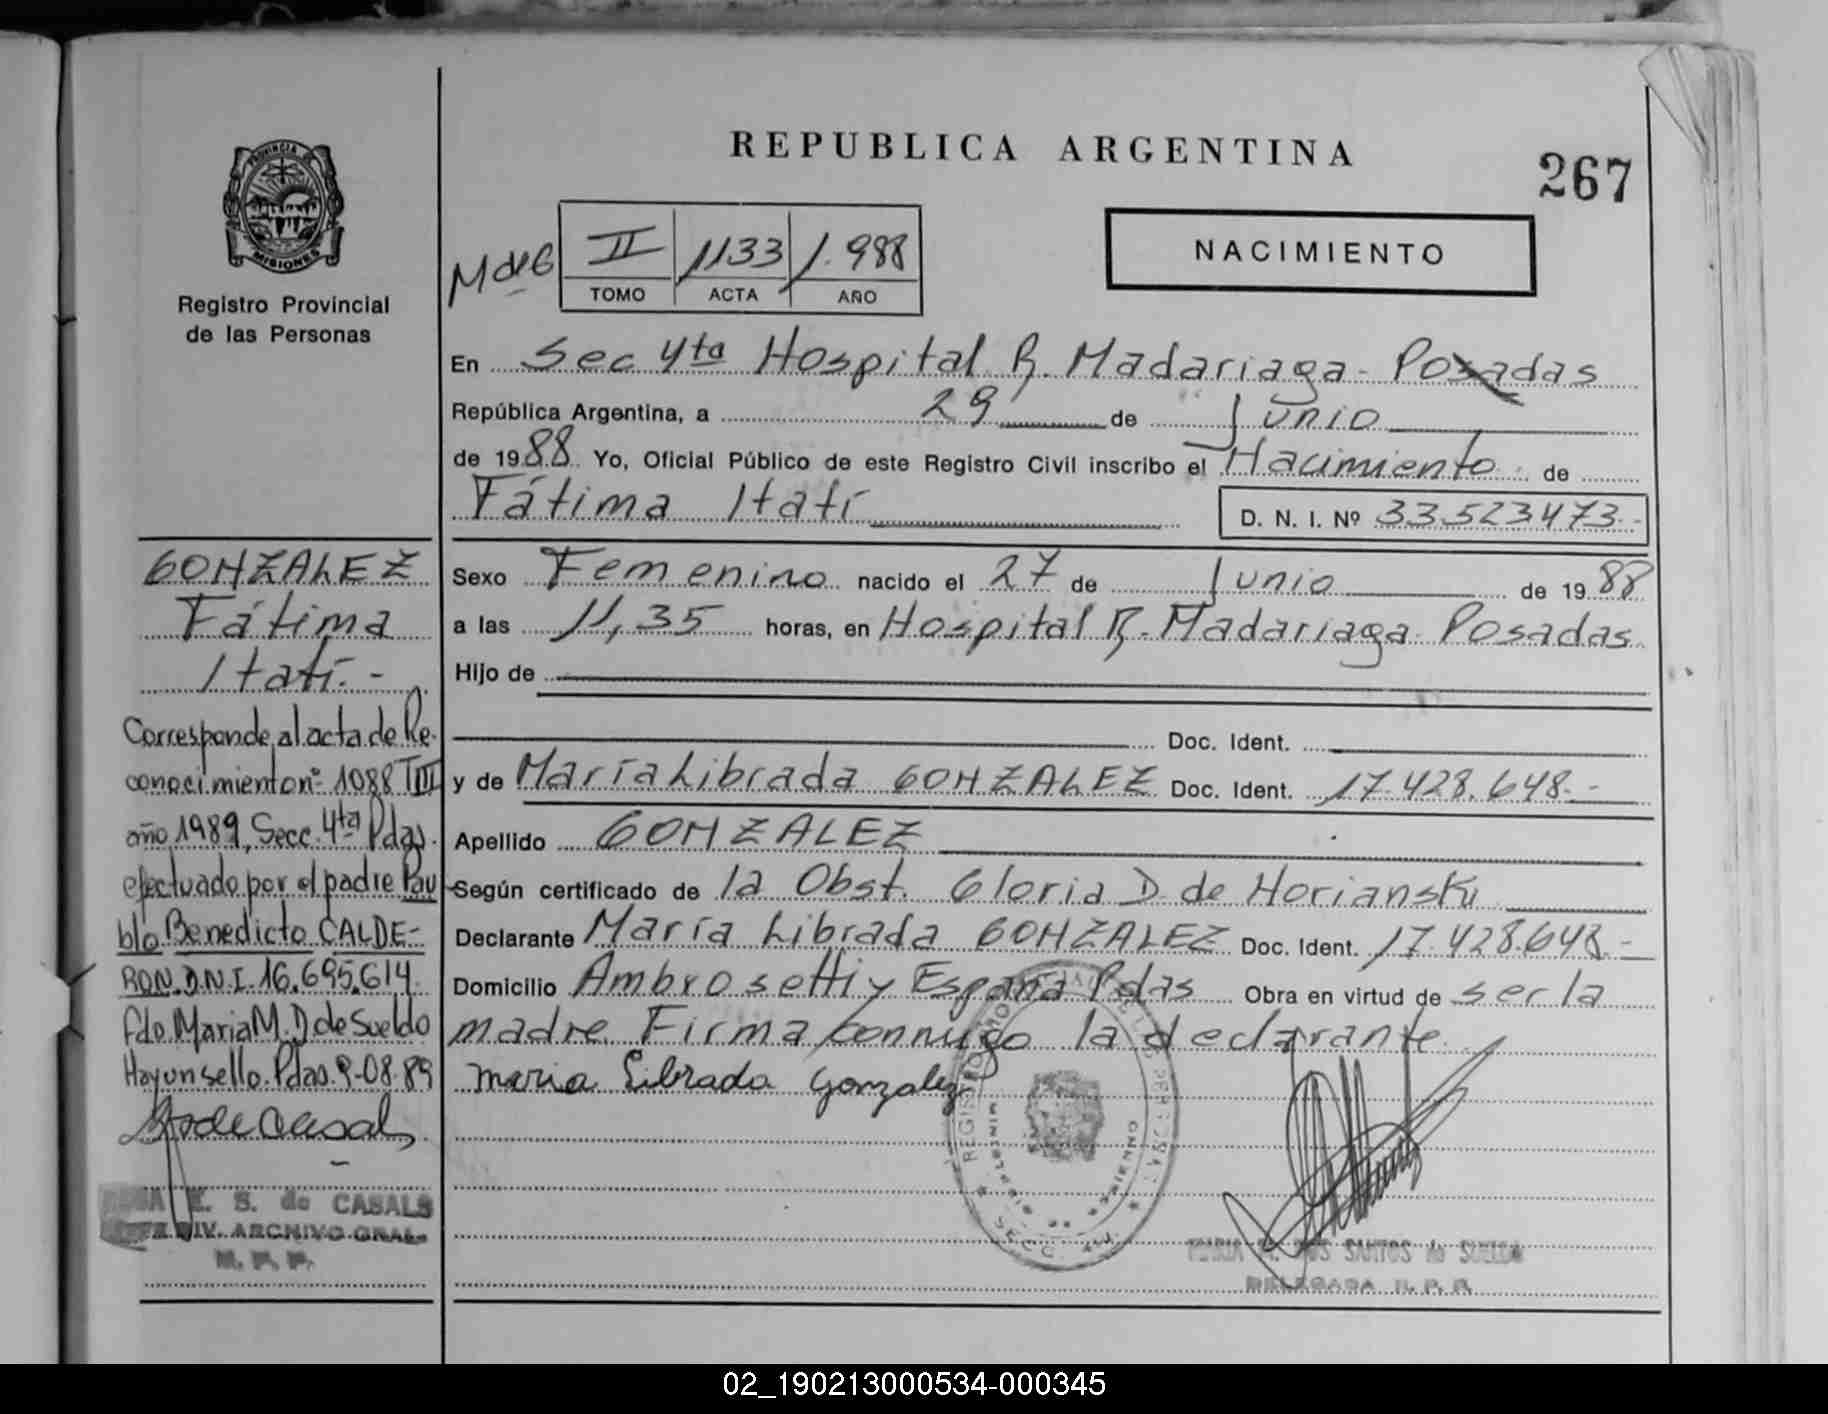 REPUBLICA ARGENTINA
267
NACIMIENTO
PROVINCIA DE
MISIONES
Registro Provincial
de las Personas
M de G II 1133 1.988
TOMO ACTA AÑO
En Sec 4ta Hospital R. Madariaga - Posadas
República Argentina, a 29 de Junio
de 1988 Yo, Oficial Público de este Registro Civil inscribo el Nacimiento de
Fátima Itatí D. N. I. Nº 33.523473.-
Sexo Femenino nacido el 27 de Junio de 1988
a las 11,35 horas, en Hospital R. Madariaga Posadas
Hijo de
Doc. Ident.
y de María Librada GONZALEZ Doc. Ident. 17.428.648.-
Apellido GONZALEZ
Según certificado de la Obst. Gloria D. de Horianski
Declarante María Librada GONZALEZ Doc. Ident. 17.428.648.-
Domicilio Ambrosetti y España Pdas Obra en virtud de ser la
madre. Firma conmigo la declarante
Maria Librada Gonzalez
GONZALEZ
Fátima
Itatí.-
Corresponde al acta de Re-
conocimiento nº 1088 TIII
año 1989, Secc. 4ta Pdas.
efectuado por el padre Pau
blo Benedicto CALDE-
RON. D.N.I. 16.695.614.
fdo. Maria M. D de Sueldo
Hay un sello. Pdas. 9-08-89
E. S. de CASALS
DIV. ARCHIVO GRAL.
SECC. 4ta
MARIA M. DOS SANTOS de SUELDO
DELEGADA R. P. P.
02_190213000534-000345